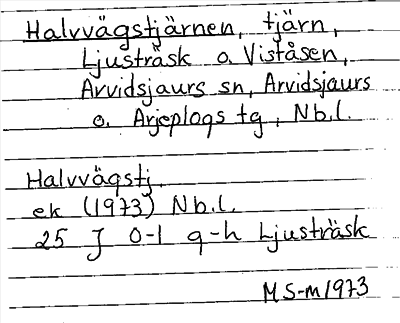 Halvvägstjärnen, tjärn,
Ljusträsk o. Viståsen,
Arvidsjaurs sn, Arvidsjaurs
o. Arjeplogs tg, Nb.l.
Halvvägstj.
ek (1973) Nb.l.
25 J 0-1 g-h Ljusträsk
MS-m 1973